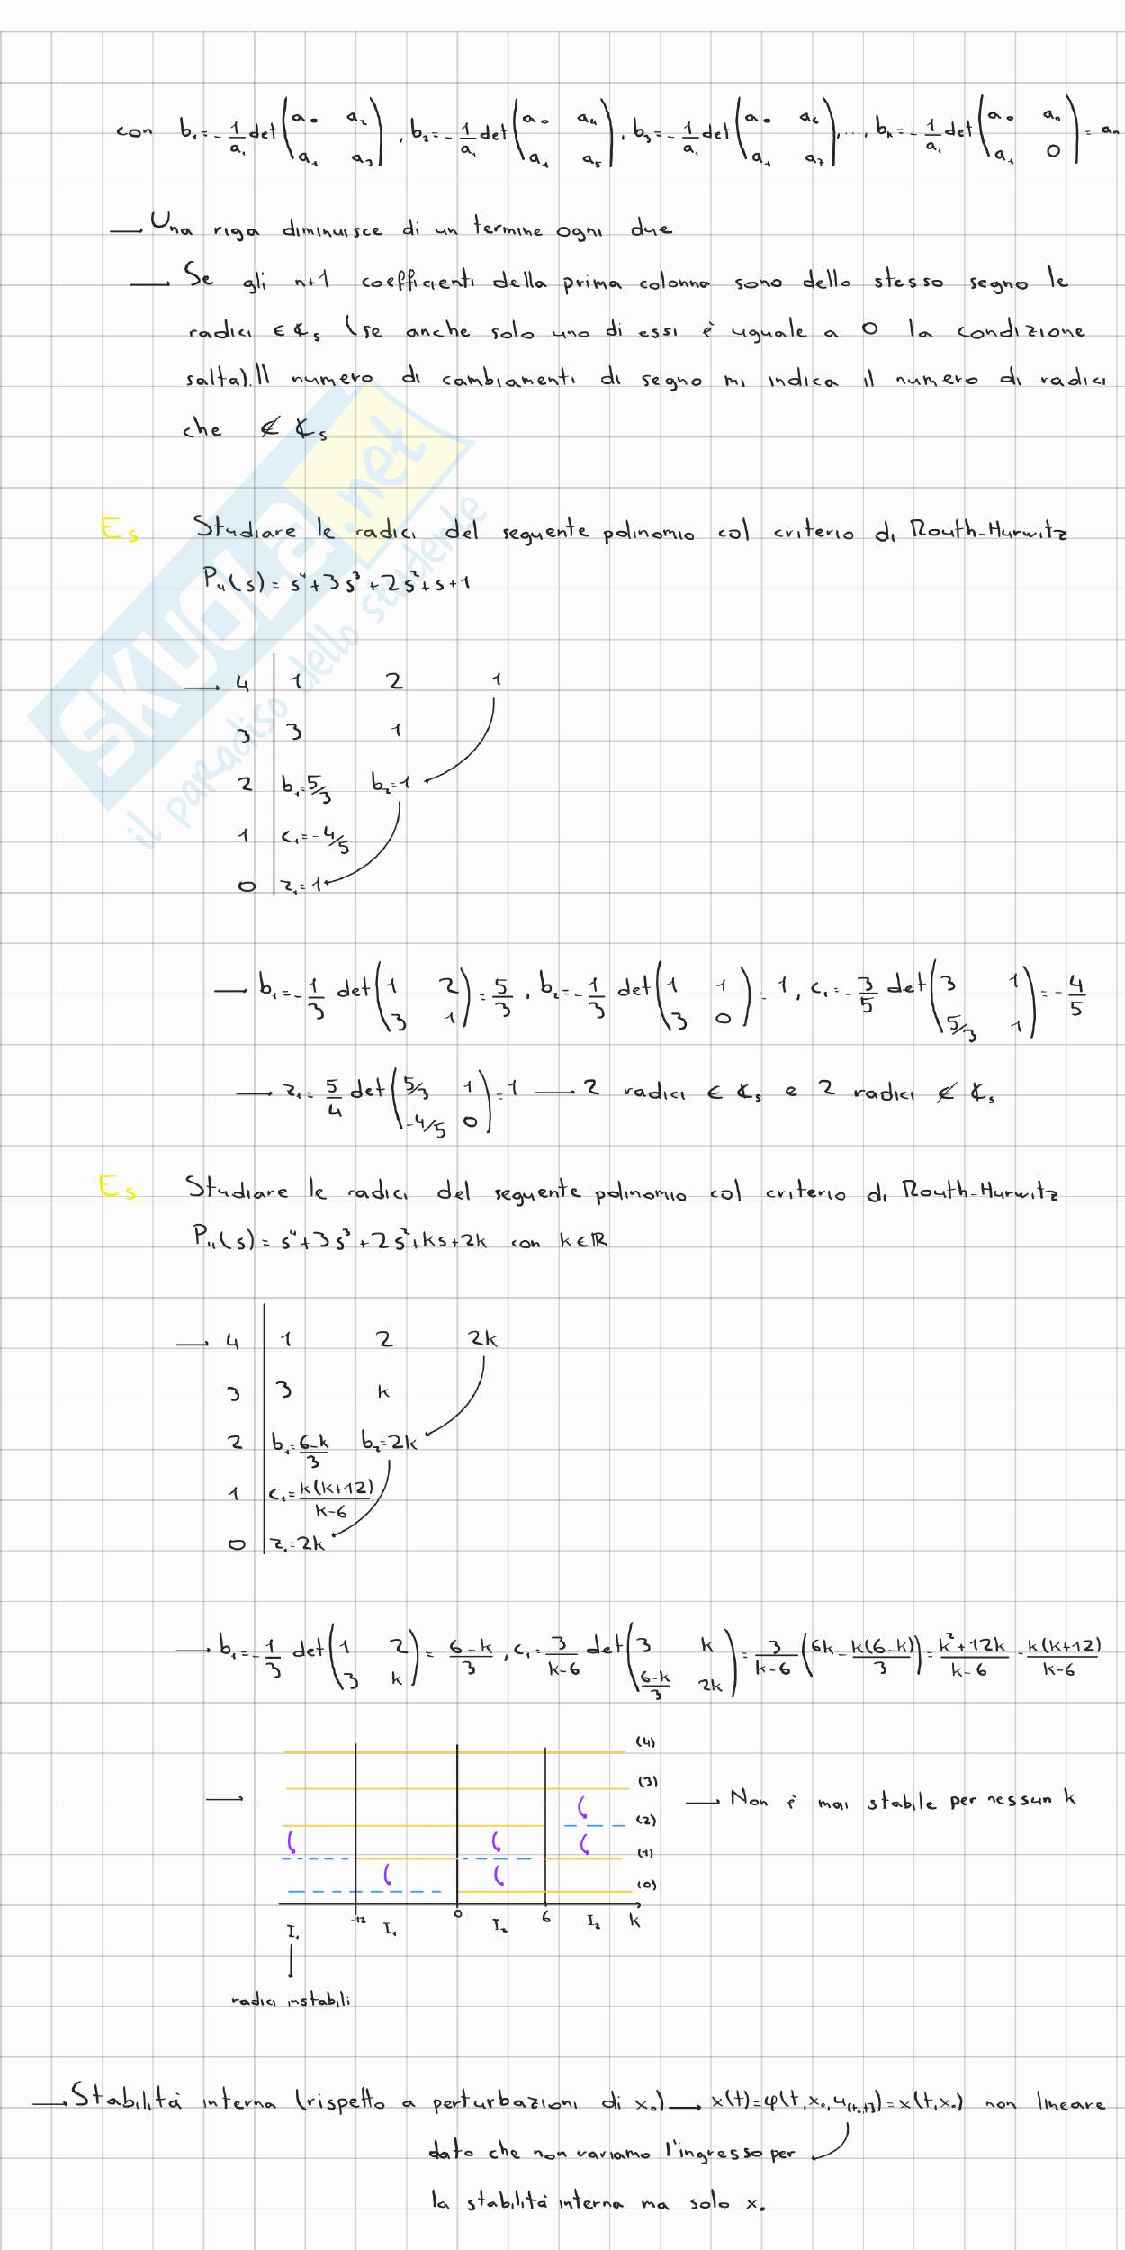 con b₁=-1/a₁ det(a₀ a₂ a₁ a₃), b₂=-1/a₁ det(a₀ a₄ a₁ a₅), b₃=-1/a₁ det(a₀ a₆ a₁ a₇), ..., bₙ=-1/a₁ det(a₀ aₙ a₁ 0)=aₙ
→ Una riga diminuisce di un termine ogni due
→ Se gli n+1 coefficienti della prima colonna sono dello stesso segno le
radici ∈ ℂₛ (se anche solo uno di essi è uguale a 0 la condizione
salta). Il numero di cambiamenti di segno mi indica il numero di radici
che ∉ ℂₛ
Es Studiare le radici del seguente polinomio col criterio di Routh-Hurwitz
P₄(s)= s⁴+3s³+2s²+s+1
→ 4 | 1 2 1
3 | 3 1
2 | b₁=5/3 b₂=1
1 | c₁=-4/5
0 | z₁=1
→ b₁=-1/3 det(1 2 3 1)=5/3, b₂=-1/3 det(1 1 3 0)=1, c₁=-3/5 det(3 1 5/3 1)=-4/5
→ z₁=5/4 det(5/3 1 -4/5 0)=1 → 2 radici ∈ ℂₛ e 2 radici ∉ ℂₛ
Es Studiare le radici del seguente polinomio col criterio di Routh-Hurwitz
P₄(s)= s⁴+3s³+2s²+ks+2k con k∈ℝ
→ 4 | 1 2 2k
3 | 3 k
2 | b₁=6-k/3 b₂=2k
1 | c₁=k(k+12)/k-6
0 | z₁=2k
→ b₁=-1/3 det(1 2 3 k)=6-k/3, c₁=3/k-6 det(3 k 6-k/3 2k)=3/k-6 (6k-k(6-k)/3)=k²+12k/k-6=k(k+12)/k-6
(4)
(3)
→ → Non è mai stabile per nessun k
(2)
(1)
(0)
-12 0 6 k
I₁ I₁ I₂ I₂
radici instabili
→ Stabilità interna (rispetto a perturbazioni di x₀) → x(t)=φ(t,x₀,u)=x(t,x₀) non lineare
dato che non variamo l'ingresso per
la stabilità interna ma solo x₀
SKUOLA.net
il paradiso dello studente